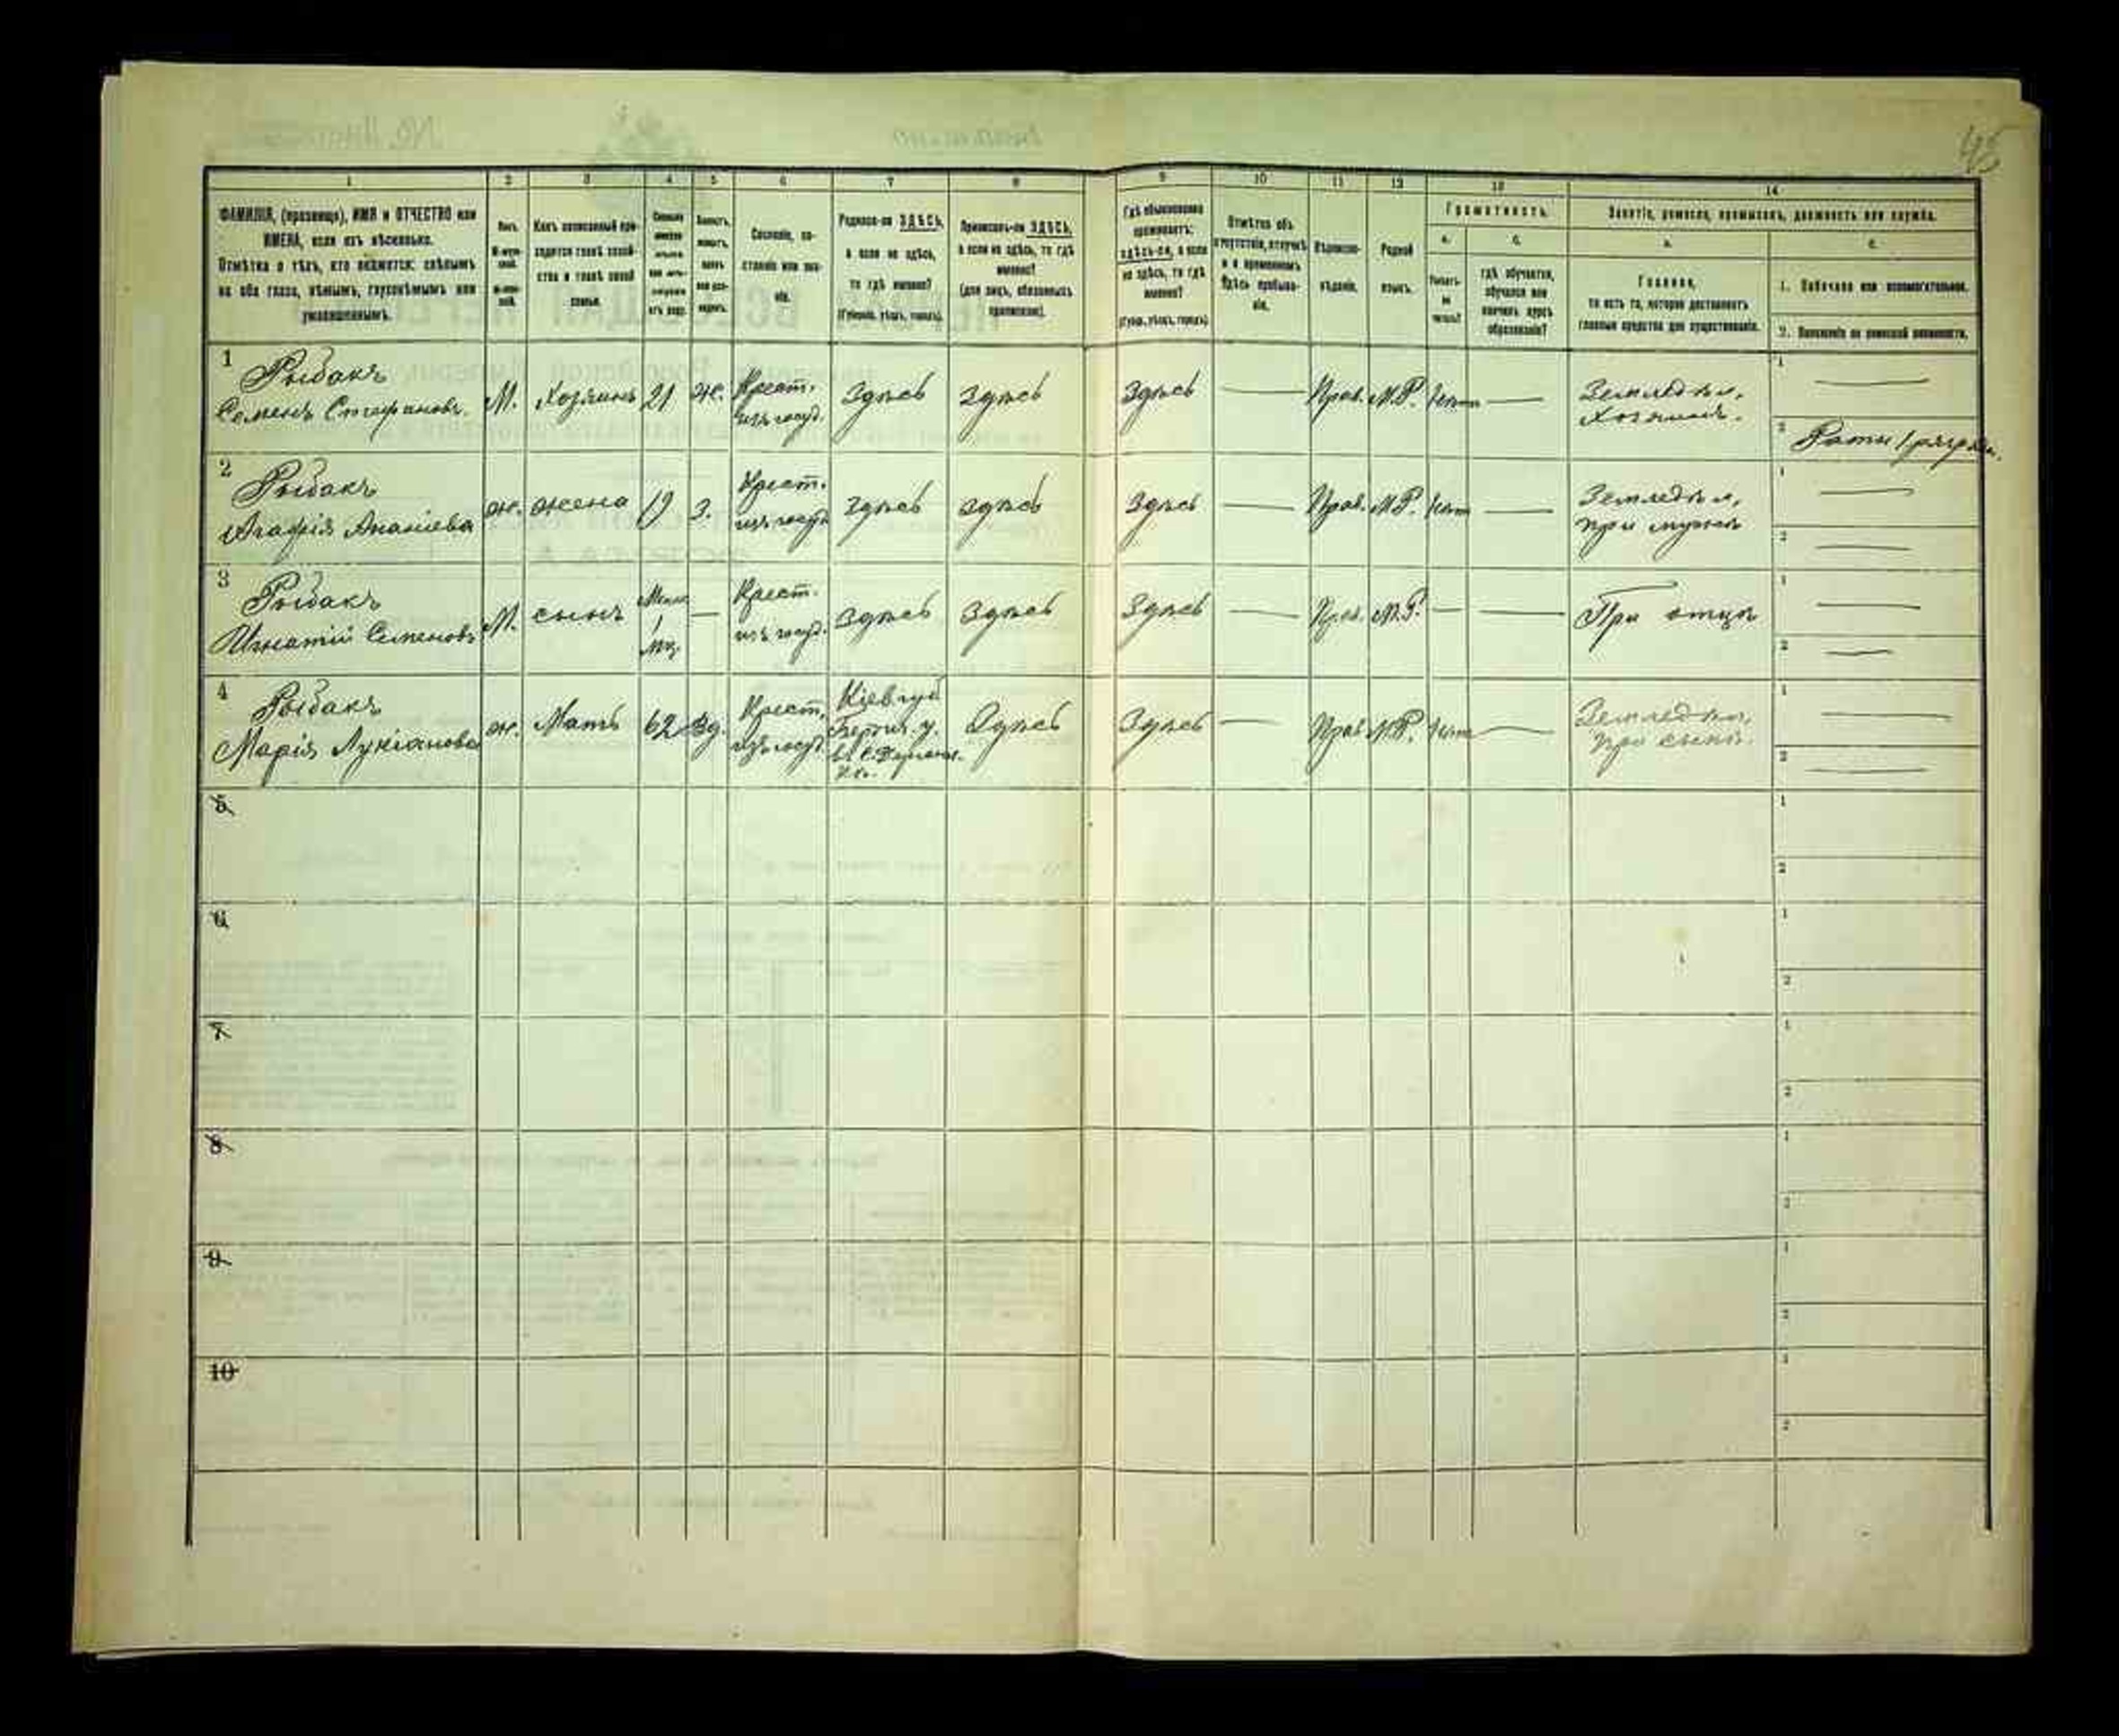 45
1 2 3 4 5 6 7 8 9 10 11 12 13 14
ФАМИЛІЯ, (прозвище), ИМЯ и ОТЧЕСТВО или ИМЕНА, если ихъ нѣсколько.
Отмѣтка о тѣхъ, кто окажется: слѣпымъ на оба глаза, нѣмымъ, глухонѣмымъ или умалишеннымъ.
Сословіе, состояніе или званіе.
Родился-ли ЗДѢСЬ, а если не здѣсь, то гдѣ именно?
(Губернія, уѣздъ, городъ).
Приписанъ-ли ЗДѢСЬ, а если не здѣсь, то гдѣ именно?
(для лицъ, обязанныхъ припискою).
Гдѣ обыкновенно проживаетъ: здѣсь-ли, а если не здѣсь, то гдѣ именно?
(Губ., уѣздъ, городъ).
Отмѣтка объ отсутствіи, отлучкѣ и о временномъ здѣсь пребываніи.
Родной языкъ.
Грамотность.
а.
б.
гдѣ обучается, обучался или кончилъ курсъ образованія?
Занятіе, ремесло, промыселъ, должность или служба.
а.
Главное,
то есть то, которое доставляетъ главныя средства для существованія.
б.
1. Побочное или вспомогательное.
2. Положеніе по воинской повинности.
1 Рыбакъ
Семенъ Стефановъ. М. Хозяинъ 21 ж. Крест. изъ госуд. Здѣсь здѣсь Здѣсь — Прав. М.Р. — Земледѣл. Хозяинъ. 1 —
2 Ратн. 1 разряд.
2 Рыбакъ
Агафія Ананіева ж. жена 19 З. Крест. изъ госуд. здѣсь здѣсь Здѣсь — Прав. М.Р. — Земледѣл, при мужѣ 1 —
2 —
3 Рыбакъ
Игнатій Семеновъ М. сынъ Менѣе 1 мц. — Крест. изъ госуд. здѣсь здѣсь Здѣсь — Прав. М.Р. — — При отцѣ 1 —
2 —
4 Рыбакъ
Марія Лукіанова ж. Мать 62 Вд. Крест. изъ госуд. Кіев. губ Бердич. у. Здѣсь Здѣсь — Прав М.Р. — Земледѣл, при сынѣ. 1 —
2 —
5 1
2
6 1
2
7 1
2
8 1
2
9 1
2
10 1
2